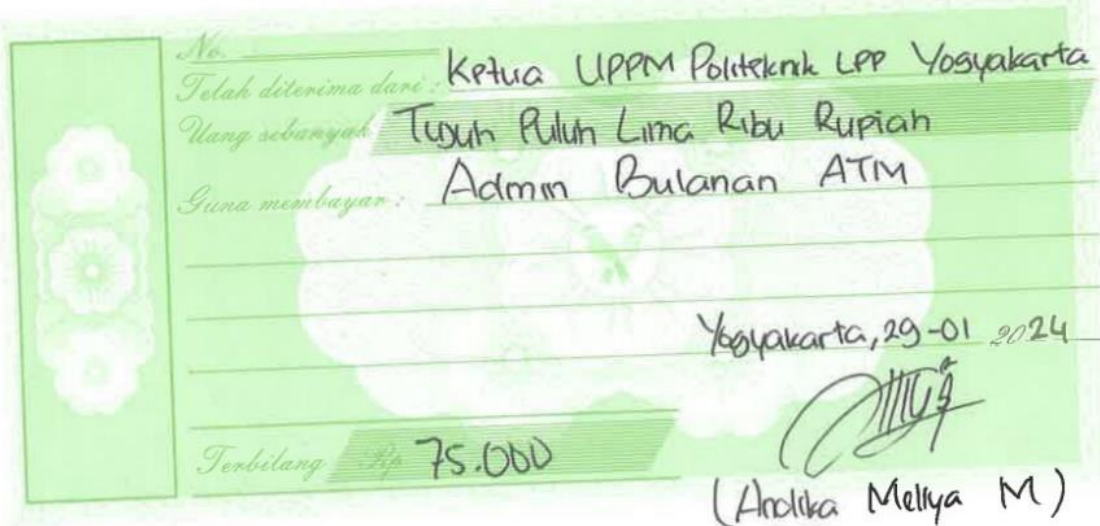 No.
Telah diterima dari : Ketua UPPM Politeknik LPP Yogyakarta
Uang sebanyak Tujuh Puluh Lima Ribu Rupiah
Guna membayar : Admin Bulanan ATM
Yogyakarta, 29-01 2024
Terbilang Rp 75.000
(Andika Meliya M)